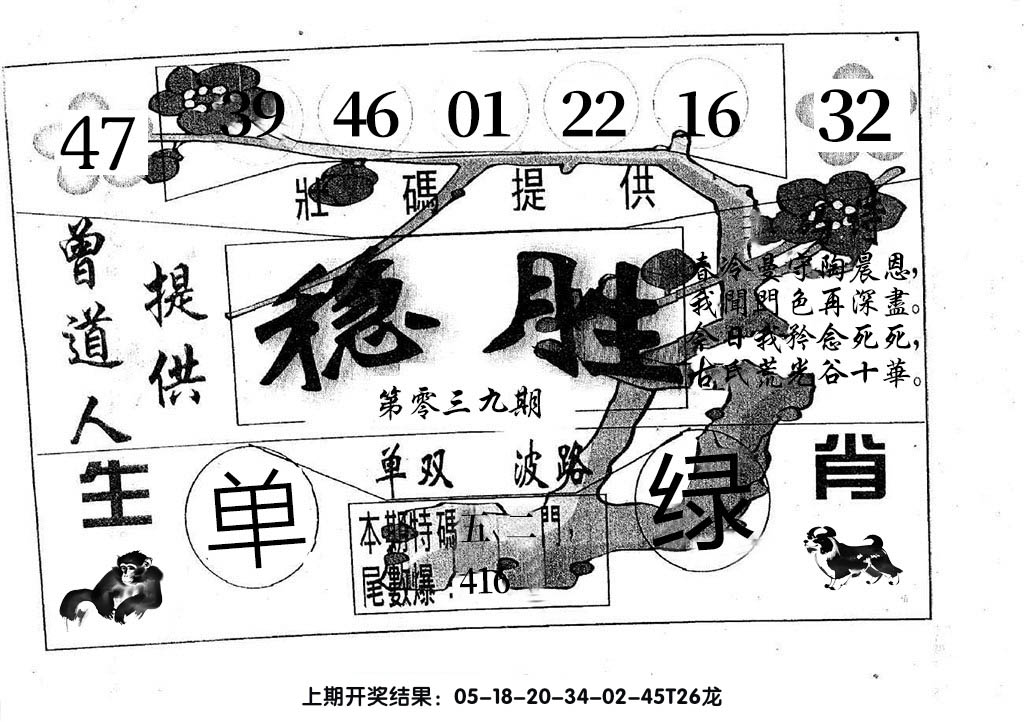 47 39 46 01 22 16 32
壯碼提供
曾道人
提供
稳胜
第零三九期
我聞門色再深盡。
余日我矜念死死,
古氏荒光谷十華。
单双 波路
生肖
单
绿
本期特碼五、二門,
尾數爆:416
上期开奖结果:05-18-20-34-02-45T26龙